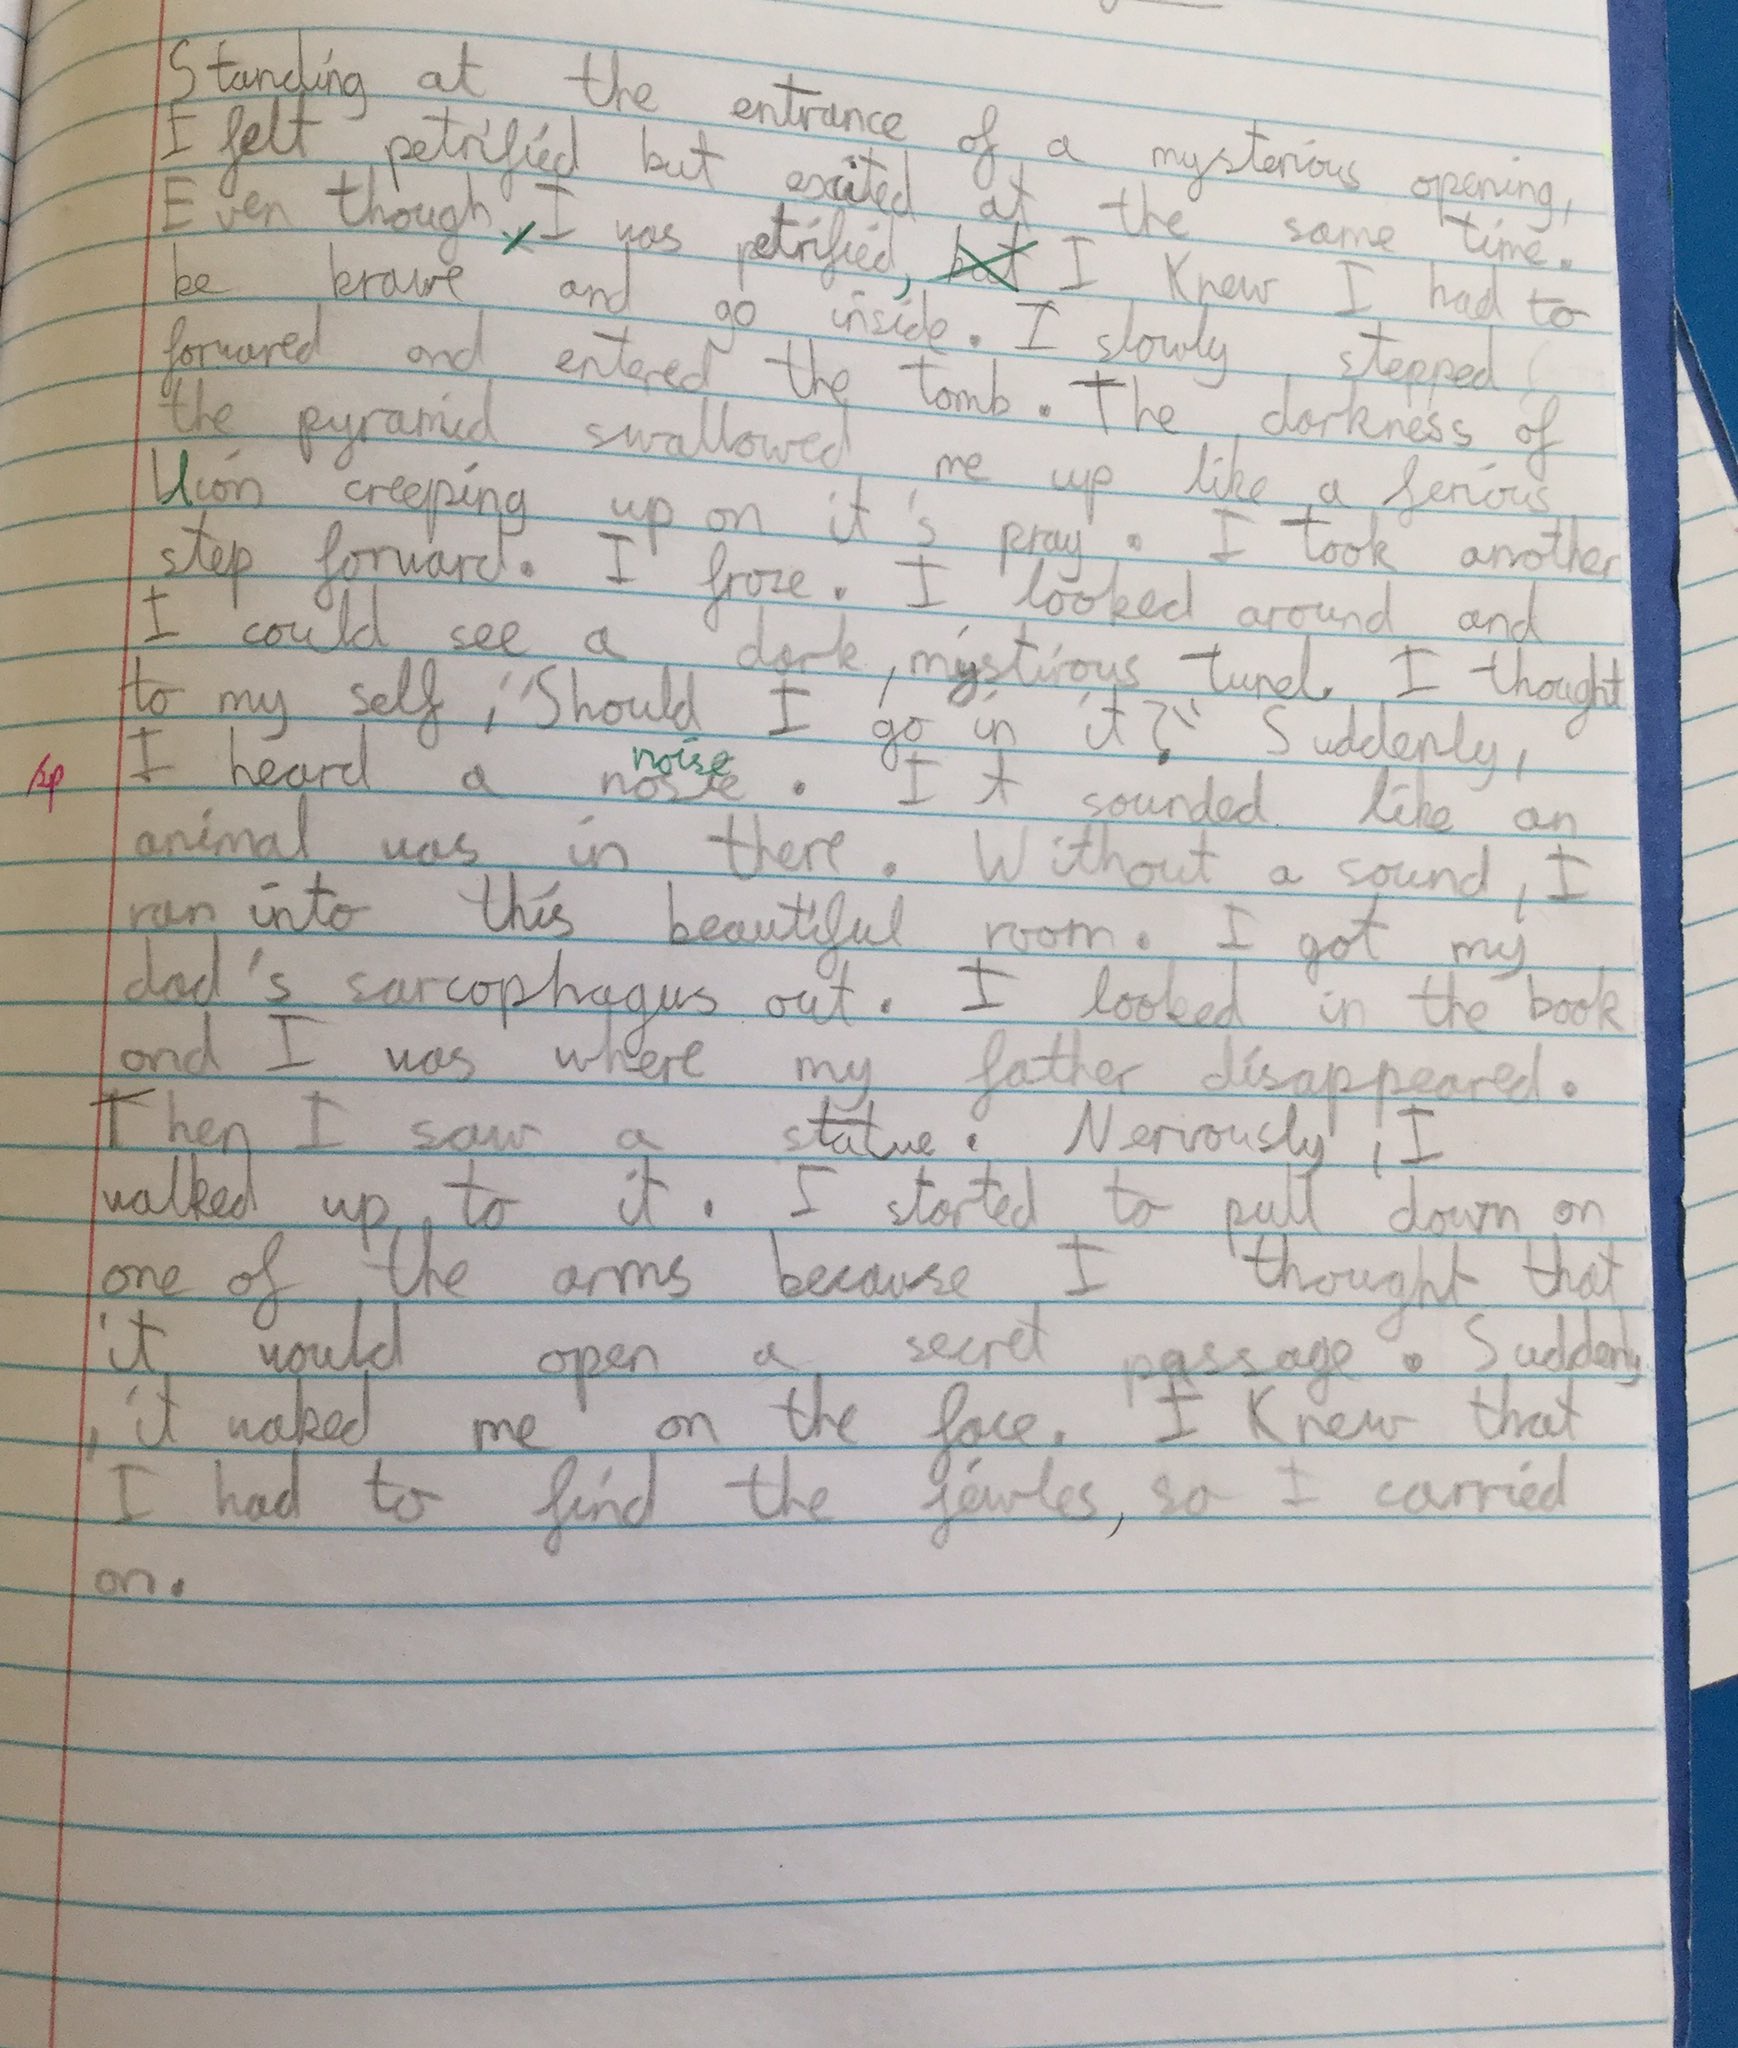 Standing at the entrance of a mysterious opening,
I felt petrified but excited at the same time.
Even though I was petrified, but I knew I had to
be brave and go inside. I slowly stepped
forwared and entered the tomb. The darkness of
the pyramid swallowed me up like a ferious
Lion creeping up on it's pray. I took another
step forward. I froze. I looked around and
I could see a dark, mystirous tunel. I thought
to my self, "Should I go in it?" Suddenly,
noise
sp I heard a noste. It sounded like an
animal was in there. Without a sound, I
ran into this beautiful room. I got my
dad's sarcophagus out. I looked in the book
and I was where my father disappeared.
Then I saw a statue. Nervously, I
walked up to it. I started to pull down on
one of the arms because I thought that
it would open a secret passage. Suddenly
, it waked me on the face. I knew that
I had to find the jewles, so I carried
on.